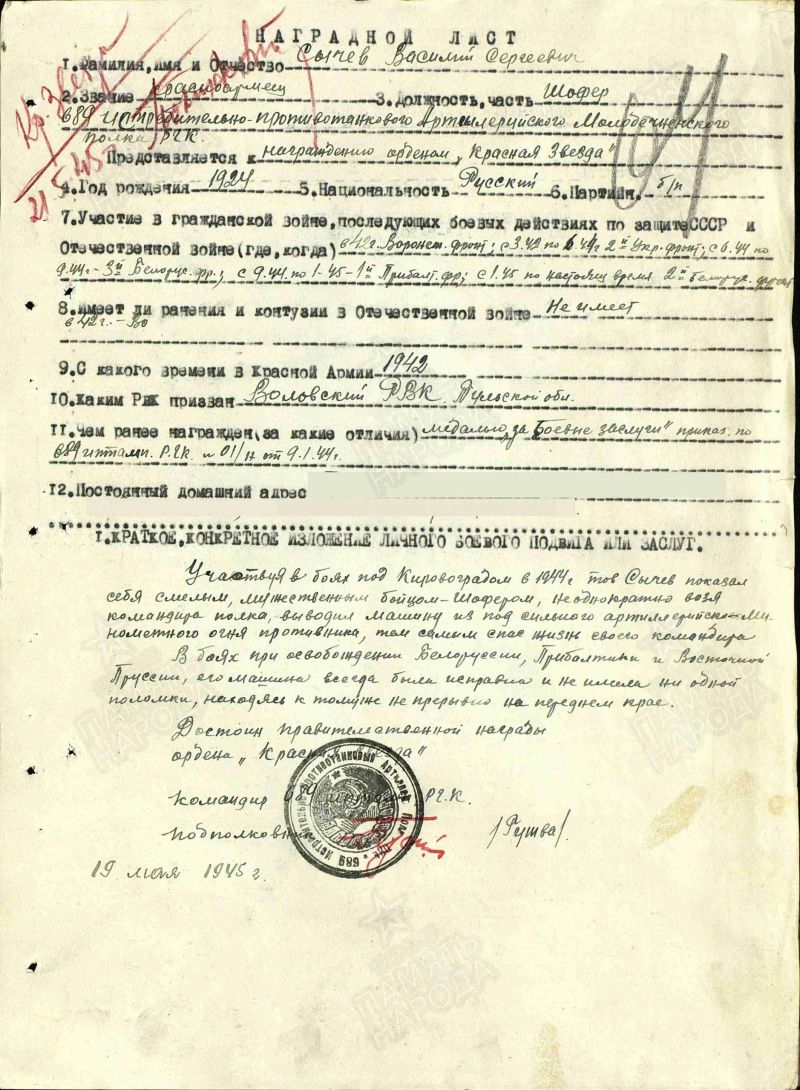 НАГРАДНОЙ ЛИСТ
1.Фамилия,имя и Отчество Сычев Василий Сергеевич
2.Звание Красноармеец 3.Должность,часть Шофер
689 истребительно-противотанкового Артиллерийского Молодечненского
полка РГК.
Представляется к награждению орденом „Красная Звезда"
4.Год рождения 1924 5.Национальность Русский 6.Партийн. б/п
7.Участие в гражданской войне,последующих боевых действиях по защите СССР и
Отечественной войне(где,когда) в 42г. Воронеж. фронт; с 3.42 по 6.44г 2й Укр. фронт; с 6.44 по
9.44г.- 3й Белорус. фр.; с 9.44. по 1-45-1й Прибалт. фр; с 1.45 по настоящ время 2й белорус. фронт
8.Имеет ли ранения и контузии в Отечественной войне Не имеет
в 42г.-Во
9.С какого времени в Красной Армии 1942
10.Каким Рвк призван Воловский РВК. Тульской обл.
11.Чем ранее награжден(за какие отличия) медалью „за Боевые заслуги" приказ. по
689 иптап. РГК. н 01/н от 9.1.44г.
12.Постоянный домашний адрес
1.КРАТКОЕ,КОНКРЕТНОЕ ИЗЛОЖЕНИЕ ЛИЧНОГО БОЕВОГО ПОДВИГА ИЛИ ЗАСЛУГ.
Участвуя в боях под Кировоградом в 1944г тов Сычев показал
себя смелым, мужественным бойцом-Шофером, неоднократно возя
командира полка, выводил машину из под сильного артиллерийско-Ми-
нометного огня противника, тем самым спас жизнь своего командира
В боях при освобождении Белоруссии, Прибалтики и Восточной
Пруссии, его машина всегда была исправна и не имела ни одной
поломки, находясь к тому же не прерывно на переднем крае.
Достоин правительственной награды
ордена „Красная Звезда"
командир 689 РГК.
подполковник /Гушва/.
19 мая 1945 г.
Кр. Звезда
21.5.45
689 Истребительно Противотанковый Артиллер. Полк
ПАМЯТЬ НАРОДА